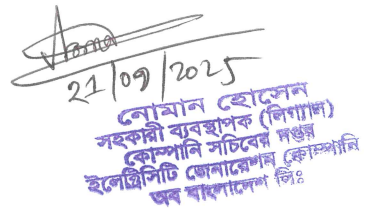 21/09/2025
নোমান হোসেন
সহকারী ব্যবস্থাপক (লিগ্যাল)
কোম্পানি সচিবের দপ্তর
ইলেক্ট্রিসিটি জেনারেশন কোম্পানি
অব বাংলাদেশ লিঃ